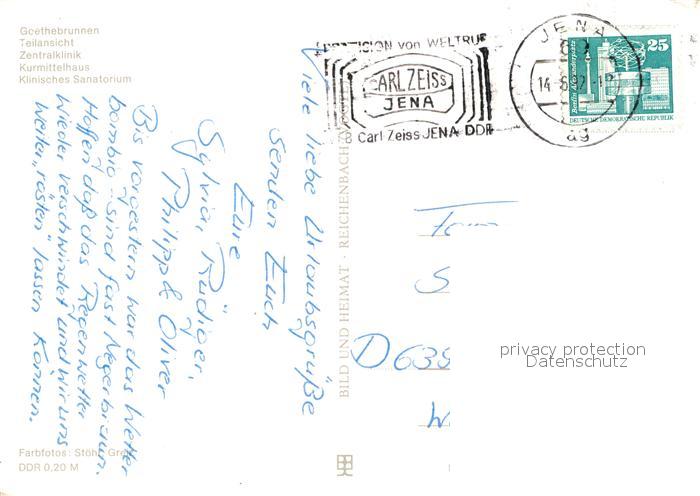 Goethebrunnen
Teilansicht
Zentralklinik
Kurmittelhaus
Klinisches Sanatorium
PRÄZISION von WELTRUF
CARL ZEISS
JENA
Carl Zeiss JENA DDR
JENA
14.6.
ag
25
Berlin, Alexanderplatz
DEUTSCHE DEMOKRATISCHE REPUBLIK
Viele liebe Urlaubsgrüße
senden Euch
Eure
Sylvia, Rüdiger,
Philipp & Oliver
Bis vorgestern war das Wetter
bombig - sind fast Negerbraun.
Hoffen, daß das Regenwetter
wieder verschwindet und wir uns
weiter "rösten" lassen können.
BILD UND HEIMAT · REICHENBACH
D 635
privacy protection
Datenschutz
Farbfotos: Stöhr, Greiz
DDR 0,20 M